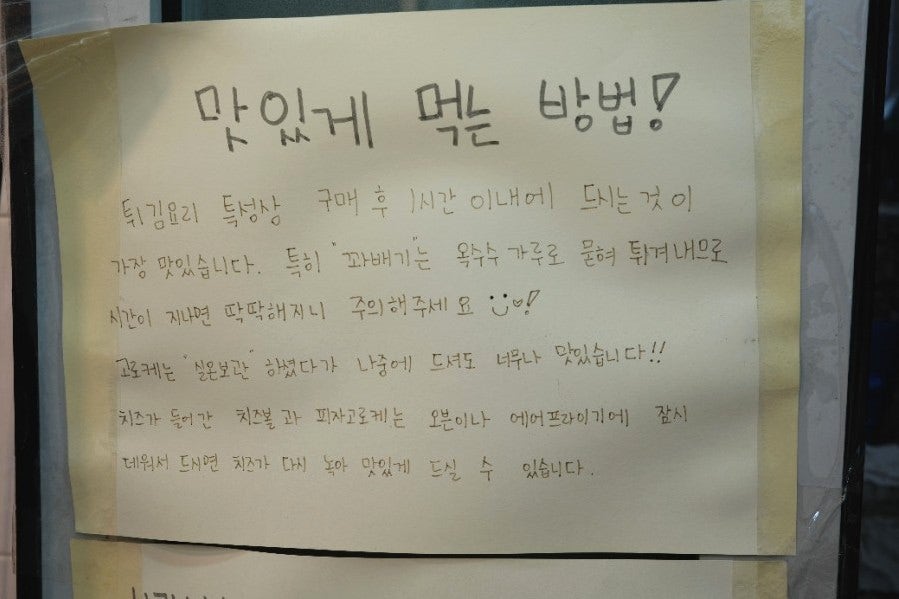 맛있게 먹는 방법!
튀김요리 특성상 구매 후 1시간 이내에 드시는 것이
가장 맛있습니다. 특히 "꽈배기"는 옥수수 가루로 묻혀 튀겨내므로
시간이 지나면 딱딱해지니 주의해주세요 :)♡!
고로케는 "실온보관" 하셨다가 나중에 드셔도 너무나 맛있습니다!!
치즈가 들어간 치즈볼과 피자고로케는 오븐이나 에어프라이기에 잠시
데워서 드시면 치즈가 다시 녹아 맛있게 드실 수 있습니다.